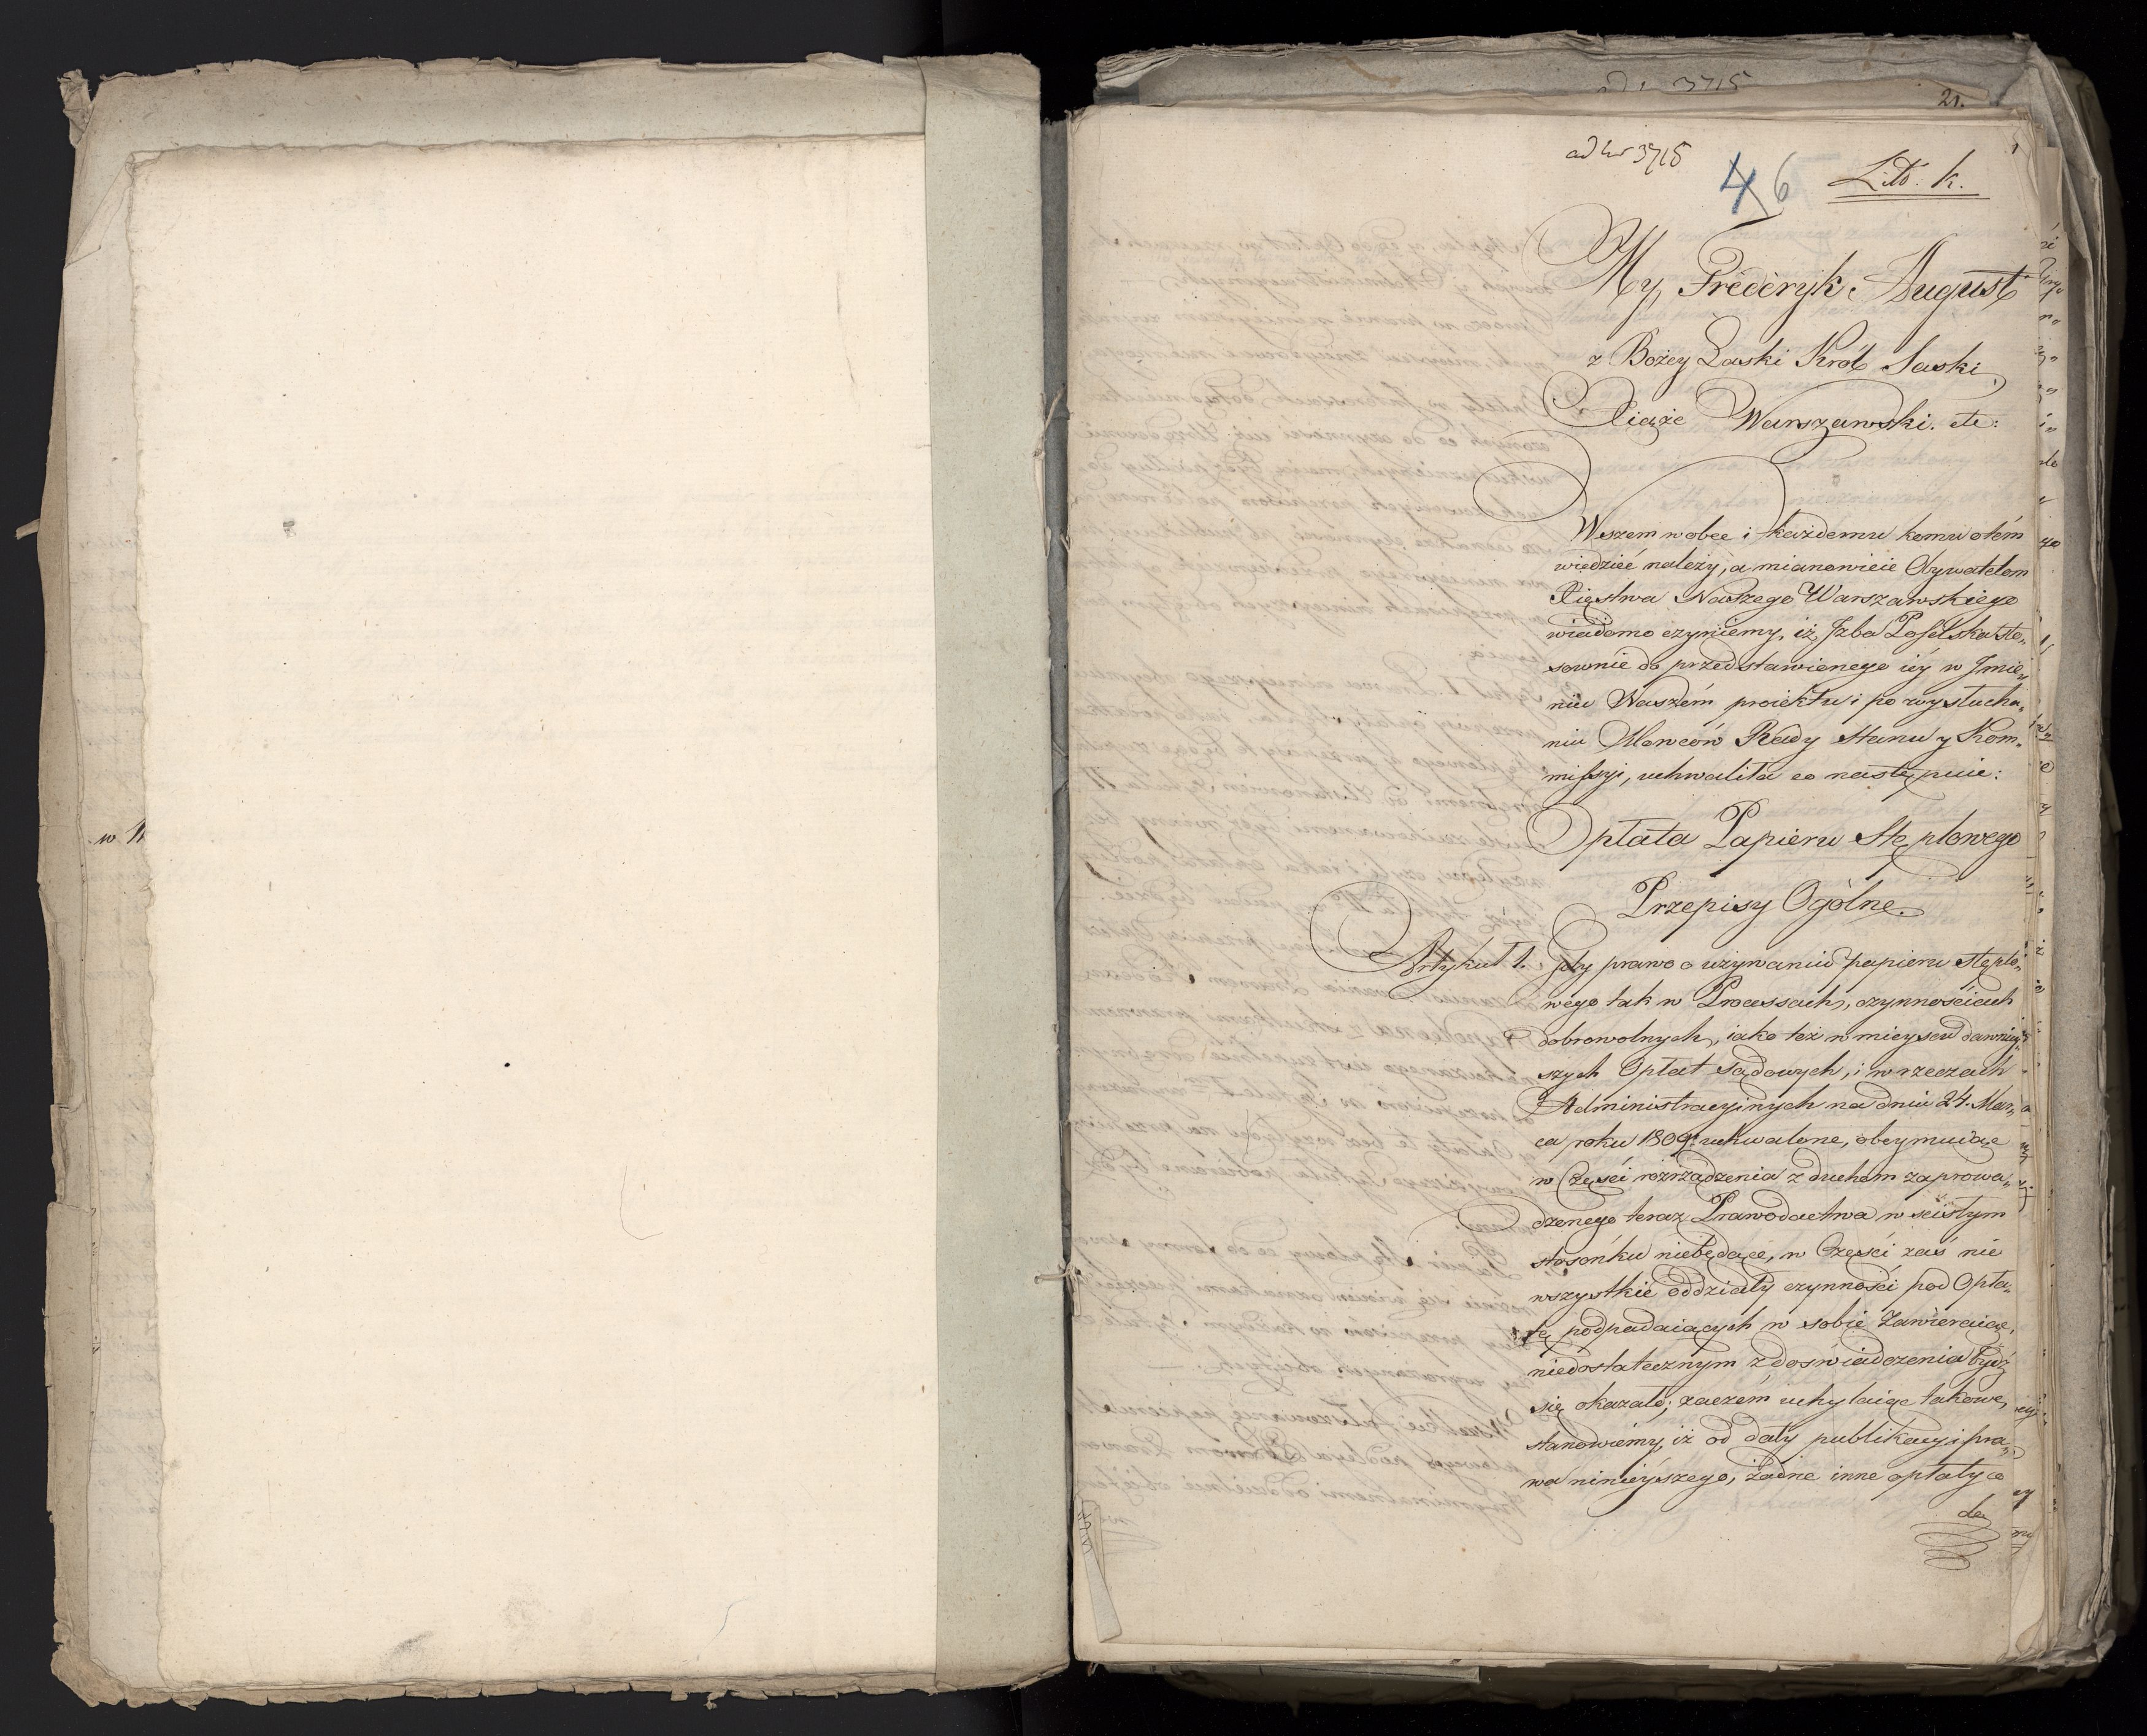 21.
ad Nr 3715
46
Litt. k.
My Fréderyk August
z Bożey Łaski Krol Saski,
Xiąże Warszawski. etc:
Wszem wobec i każdemu komu otém
wiedzieć należy, a mianowicie Obywatelom
Xięstwa Naszego Warszawskiego
wiadomo czyniemy, iż Jzba Poselska sto„
sownie do przedstawionego iéy w Jmie„
niu Naszém proiektu i po wysłucha„
niu Mowców Rady Stanu y Kom„
missyi, uchwaliła co następuie:
Opłata Papieru Stęplowego
Przepisy Ogólne.
Artykuł 1. Gdy prawo o używaniu papieru stęplo„
wego tak w Processach, czynnościach
dobrowolnych, iako też w mieyscu dawniey„
szych Opłat Sądowych, i w rzeczach
Administracyjnych na dniu 24. Mar„
ca roku 1809. uchwalone, obeymuiąc
w Części rozrządzenia z duchem zaprowa„
dzonego teraz Prawodactwa w ścisłym
stosónku niebędące, w Części zaś nie
wszystkie oddziały czynności pod Opła„
tę podpadaiących w sobie zawieraiąc,
niedostatecznym z doświadczenia bydź
się okazało; zaczém uchylaiąc takowe,
stanowiemy, iż od daty publikacyi pra„
wa ninieyszego, żadne inne opłaty co
do